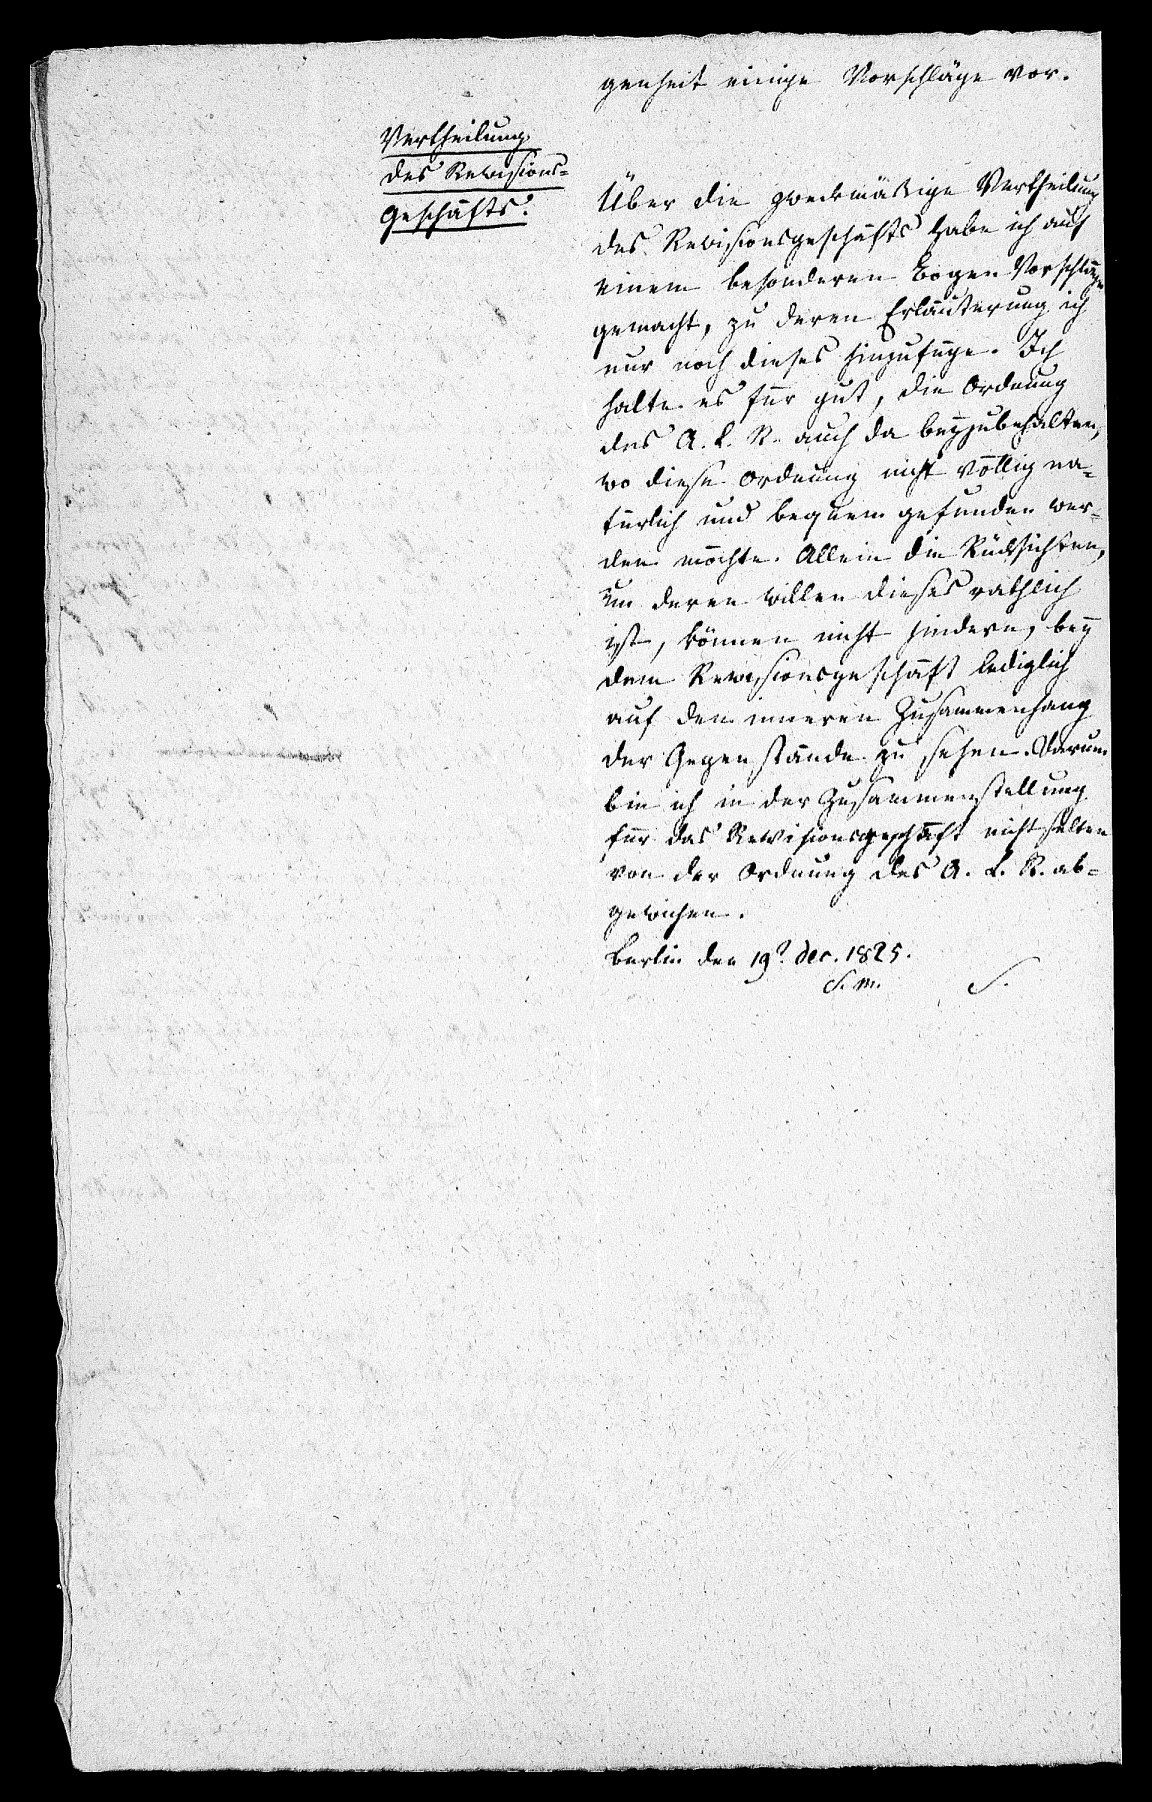 genheit einige Vorschläge vor.
Vertheilung
des Revisions-
Geschäfts.
Über die zweckmäßige Vertheilung
des Revisionsgeschäfts habe ich auf
einem besonderen Bogen Vorschläge
gemacht, zu deren Erläuterung ich
nur noch dieses hinzufüge. Ich
halte es für gut, die Ordnung
des A. L. R. auch da beyzubehalten,
wo diese Ordnung nicht völlig na-
türlich und bequem gefunden wer-
den möchte. Allein die Rücksichten,
um deren willen dieses räthlich
ist, können nicht hindern, bey
dem Revisionsgeschäft lediglich
auf den inneren Zusammenhang
der Gegenstände zu sehen. Darum
bin ich in der Zusammenstellung
für das Revisionsgeschäft nicht selten
von der Ordnung des A. L. R. ab-
gewichen.
Berlin den 19. dec. 1825.
S. m. S.